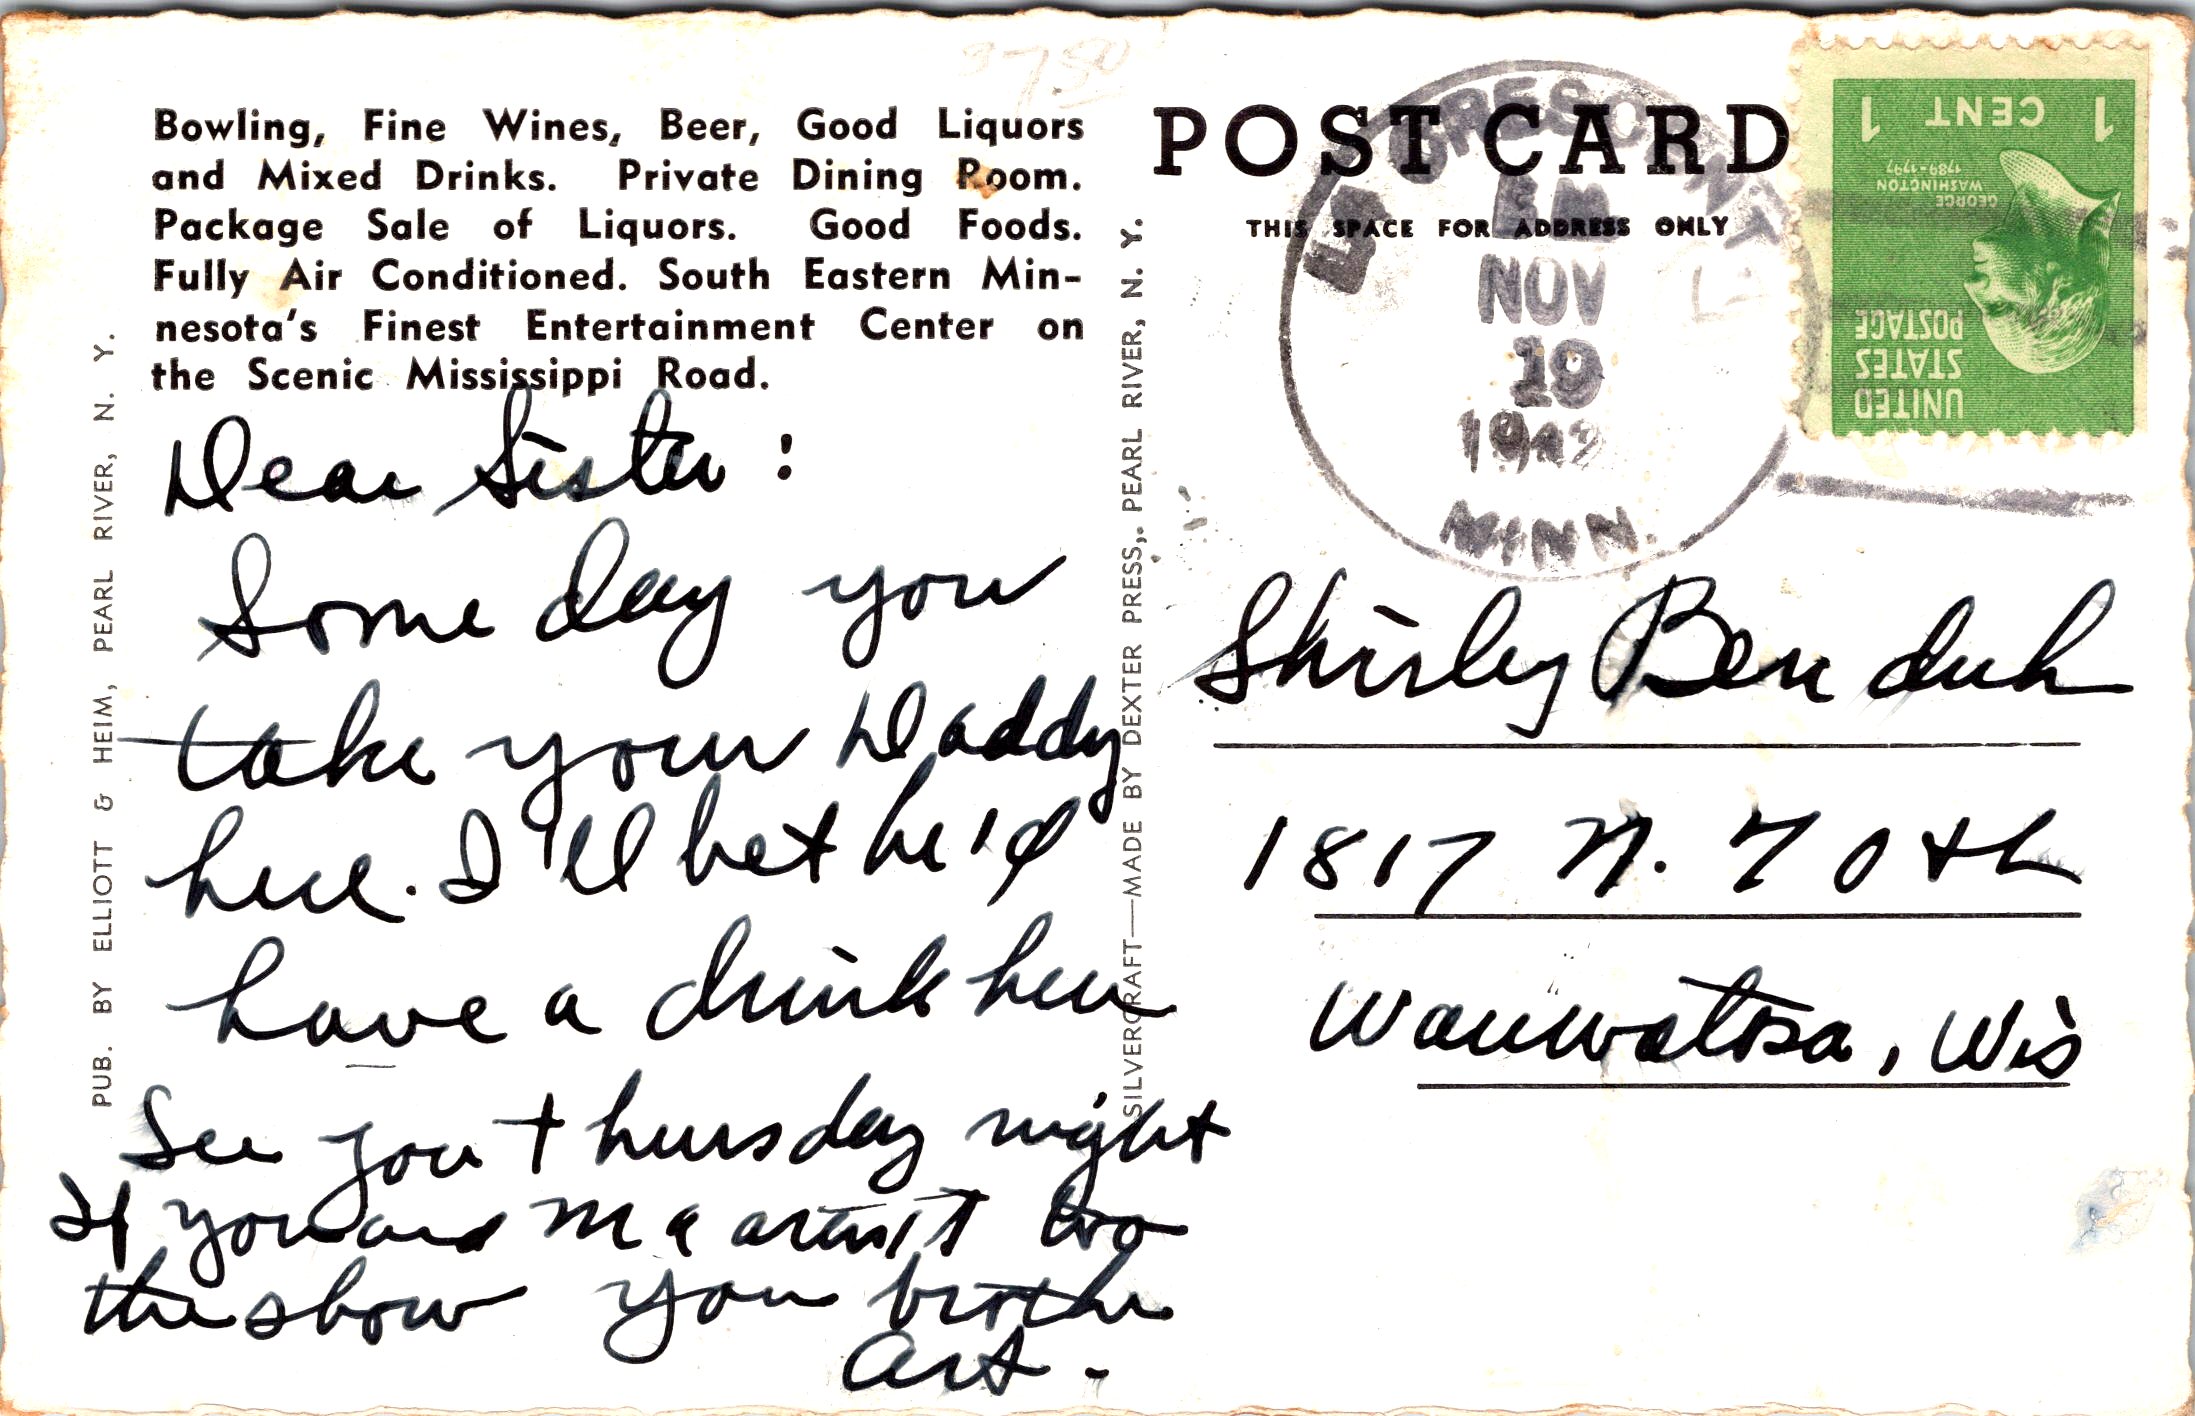 Bowling, Fine Wines, Beer, Good Liquors
and Mixed Drinks. Private Dining Room.
Package Sale of Liquors. Good Foods.
Fully Air Conditioned. South Eastern Min-
nesota's Finest Entertainment Center on
the Scenic Mississippi Road.
Dear Sister:
Some day you
take your Daddy
here. I'll bet he'd
have a drink here
See you thursday night
If you and Ma arn't to
the show you brother
Art.
PUB. BY ELLIOTT & HEIM, PEARL RIVER, N. Y.
SILVERCRAFT—MADE BY DEXTER PRESS, PEARL RIVER, N. Y.
POST CARD
THIS SPACE FOR ADDRESS ONLY
LA CRESCENT
NOV
19
MINN.
1 CENT 1
GEORGE
WASHINGTON
1789-1797
UNITED
STATES
POSTAGE
Shirley Benduh
1817 N. 70th
Wauwatosa, Wis